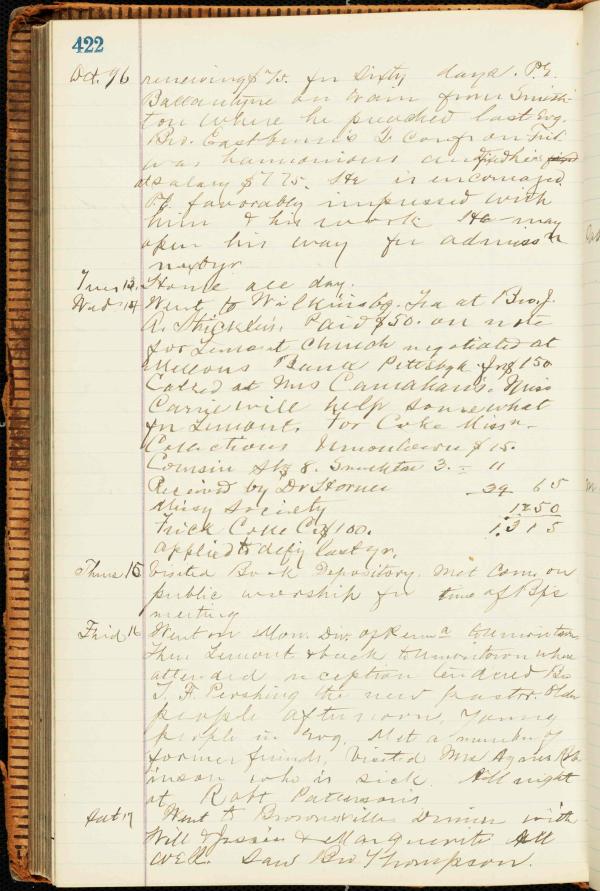 422
Oct. 96 renewing $75. for Sixty days. P.E.
Ballantyne on train from Smith-
ton where he preached last Evg.
Bro. Eastburn's Q Conf on Frid.
was harmonious and
at salary $775. He is encouraged.
P.E. favorably impressed with
him & his work He may
open his way for admiss'n
next yr
Tues 13. Home all day.
Wed 14 Went to Wilkinsbg. Tea at Bro. J.
R. Paid $50. on note
for Lemont Church negotiated at
Mellons Bank Pittsbgh for $150
Called at Mrs Carnahan's. Miss
Carrie will help somewhat
for Lemont. For Coke Miss'n
Collections Uniontown $15.
Cousin 8. Smithton 3. = 11
Received by Dr Horner 39 65
Missy Society 12 50
Frick Coke Co $100. 1.3 1 5
applied to defiy last yr.
Thurs 15 Visited Book Depository. Met Com. on
public worship for time of Bp's
meeting
Frid 16 Went on Mon. Div. of Penna to Uniontown
then Lemont & back to Uniontown where
attended reception tendered Bro
T. F. Pershing the new pastor. Older
people afternoon, Young
people in Evg. Met a number of
former friends, Visited Mrs Agnes Rob-
inson who is sick. All night
at Robt Pattersons
Sat 17 Went to Brownsville Dinner with
Will & Jessie & Marguerite All
well. Saw Bro Thompson.